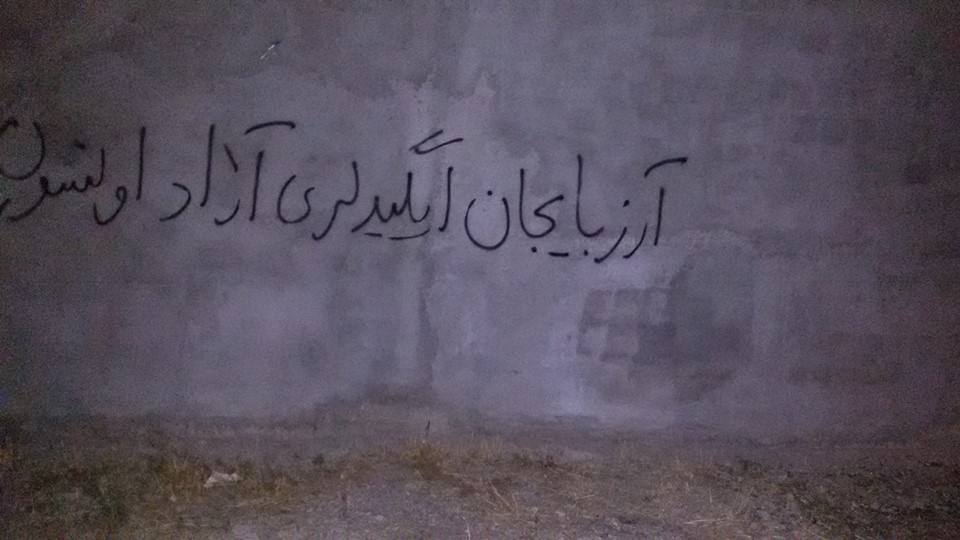 آرزبایجان ایگیدلری آزاد اولسون